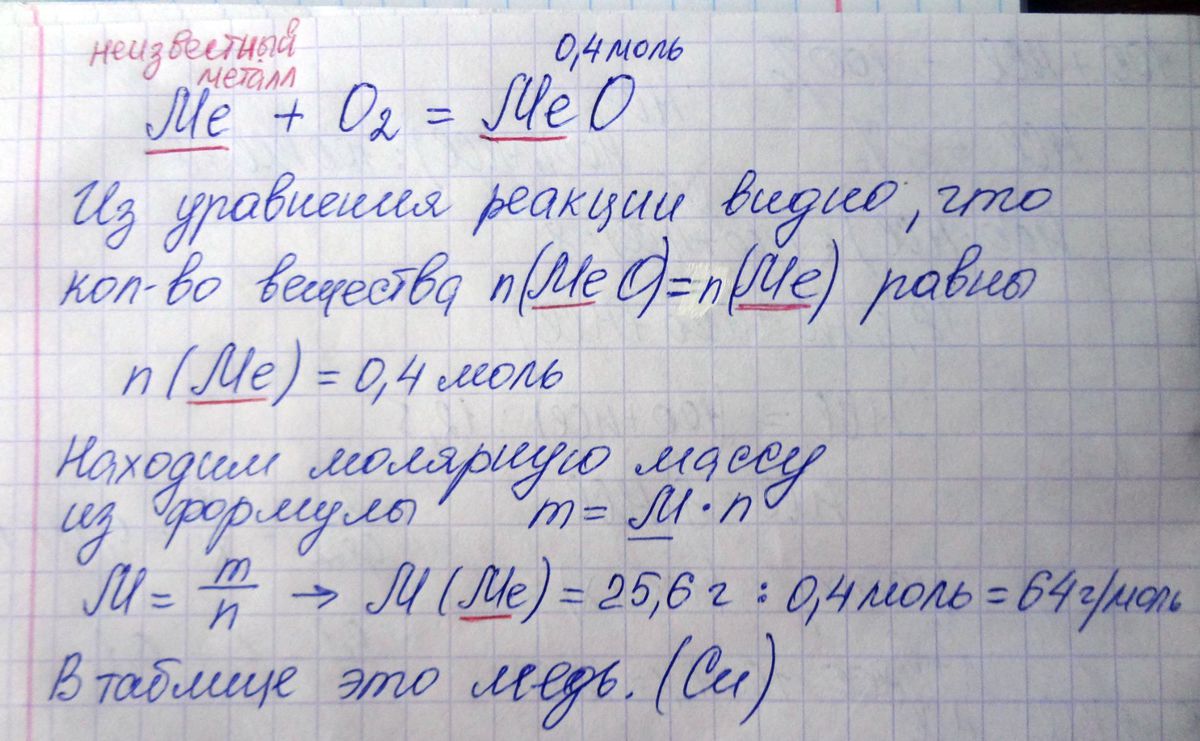 неизвестный
металл
0,4 моль
Ме + O₂ = МеO
Из уравнения реакции видно, что
кол-во вещества n(МеO)=n(Ме) равны
n (Ме) = 0,4 моль
Находим молярную массу
из формулы m = M · n
M = m/n → M (Ме) = 25,6 г : 0,4 моль = 64 г/моль
В таблице это медь. (Cu)